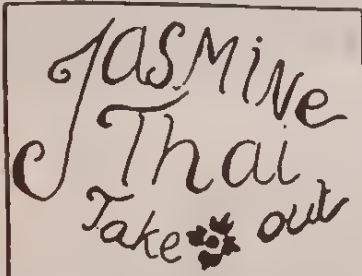 JASMINe
Thai
Take out